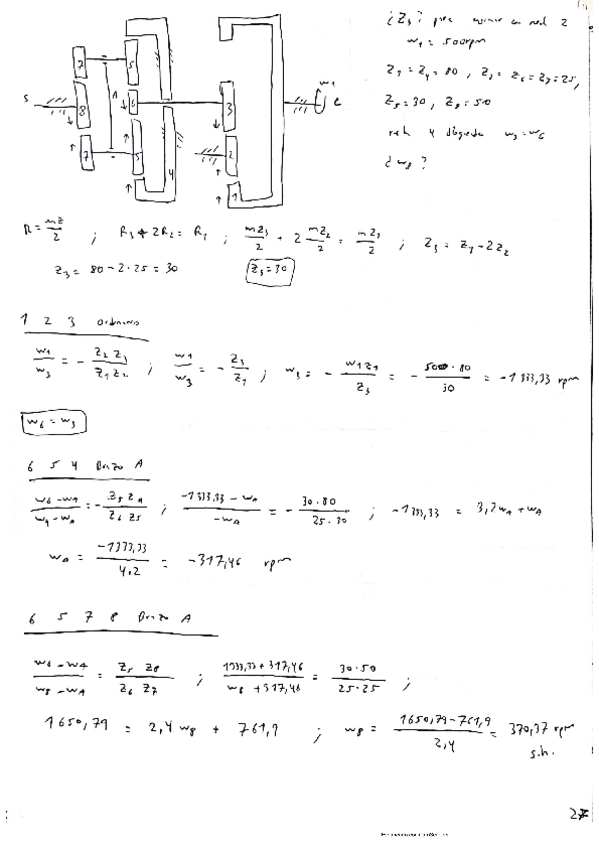 ¿Z₃? para misma m red 2
w₁ = 500rpm
Z₁ = Z₄ = 80, Z₂ = Z₆ = Z₇ = 25,
Z₅ = 30, Z₈ = 50
red 4 w₃ = w₆
¿w₈?
7
5
A
S
8
6
3
w₁
E
7
5
4
2
1
R = mZ/2 ; R₃ + 2R₂ = R₁ ; mZ₃/2 + 2 mZ₂/2 = mZ₁/2 ; Z₃ = Z₁ - 2Z₂
Z₃ = 80 - 2·25 = 30 Z₃ = 30
1 2 3 ordinario
w₁/w₃ = - Z₂ Z₃/Z₁ Z₂ ; w₁/w₃ = - Z₃/Z₁ ; w₃ = - w₁Z₁/Z₃ = - 500·80/30 = -1333,33 rpm
w₆ = w₃
6 5 4 Brazo A
w₆-wA/w₄-wA = - Z₅ Z₄/Z₆ Z₅ ; -1333,33 - wA/-wA = - 30·80/25·30 ; -1333,33 = 3,2wA + wA
wA = -1333,33/4,2 = -317,46 rpm
6 5 7 8 Brazo A
w₆-wA/w₈-wA = Z₅ Z₈/Z₆ Z₇ ; 1333,33+317,46/w₈+317,46 = 30·50/25·25 ;
1650,79 = 2,4w₈ + 761,9 ; w₈ = 1650,79-761,9/2,4 = 370,37 rpm
s.h.
27